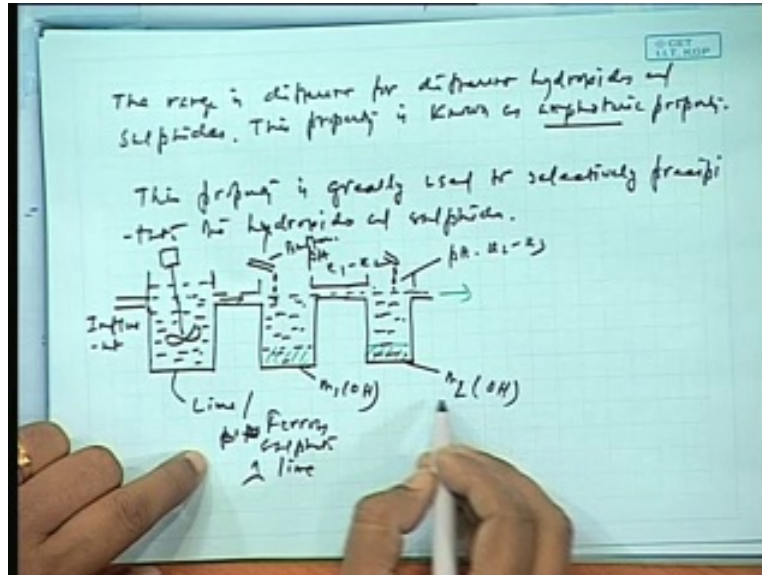 © CET
I.I.T. KGP
The range is different for different hydroxides and
sulphides. This property is known as amphoteric property.
This property is greatly used to selectively precipi
-tate the hydroxides and sulphides.
pH
x1-x2
pH - x2-x3
Influe
-nt
Lime/
Ferrous
sulphate
lime
M1(OH)
M2(OH)